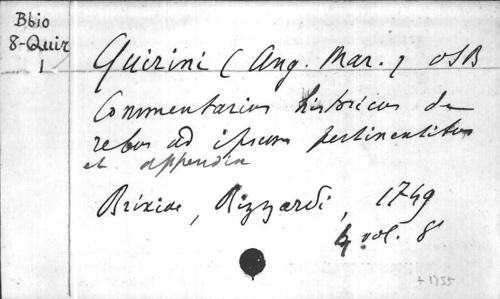 Bbio
8-Quir
1
Quirini (Ang. Mar.) OSB
Commentarius historicus de
rebus ad ipsum pertinentibus
et appendix
Brixiae, Rizzardi, 1749
4 vol. 8°
+ 1755